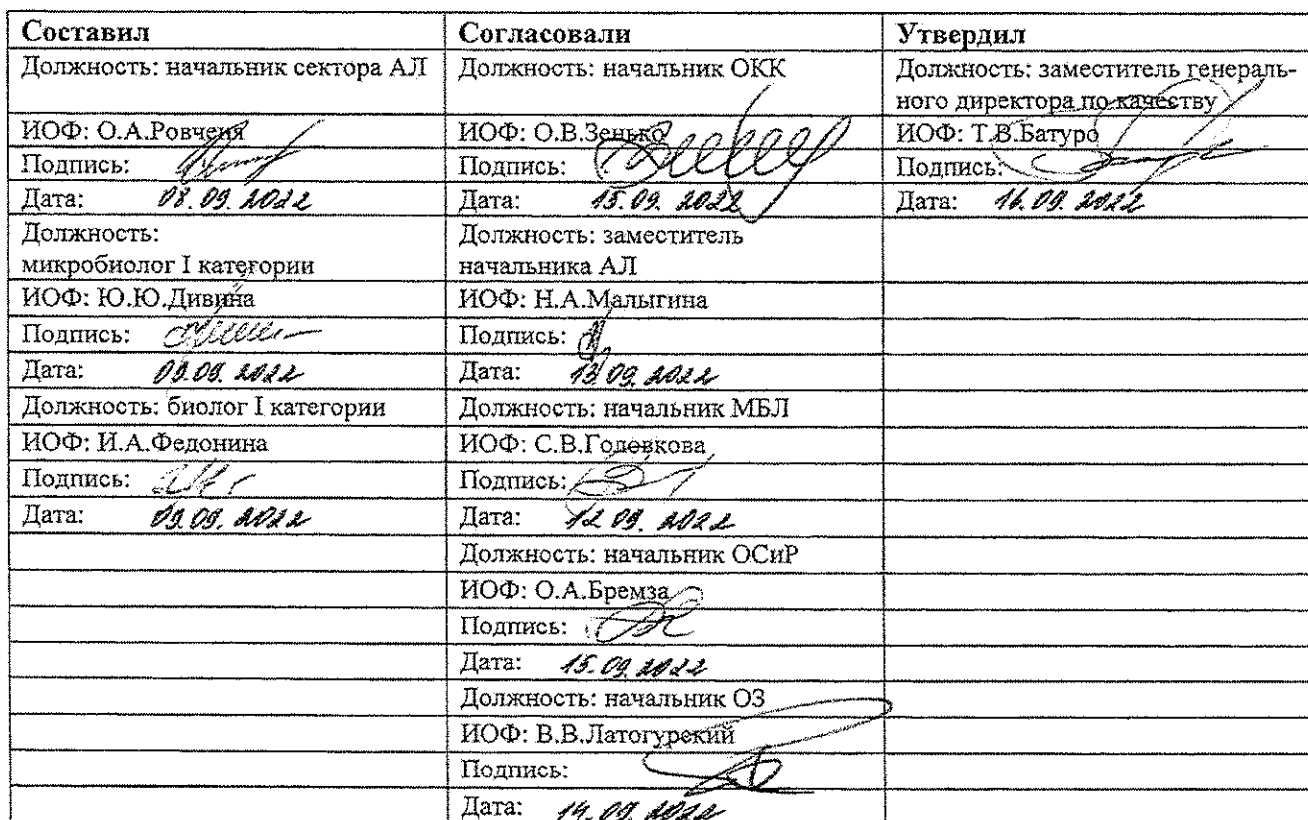 Составил Согласовали Утвердил
Должность: начальник сектора АЛ Должность: начальник ОКК Должность: заместитель генераль-
ного директора по качеству
ИОФ: О.А.Ровченя ИОФ: О.В.Зенько ИОФ: Т.В.Батуро
Подпись: Подпись: Подпись:
Дата: 08.09.2022 Дата: 15.09.2022 Дата: 16.09.2022
Должность: Должность: заместитель
микробиолог I категории начальника АЛ
ИОФ: Ю.Ю.Дивина ИОФ: Н.А.Малыгина
Подпись: Подпись:
Дата: 09.09.2022 Дата: 13.09.2022
Должность: биолог I категории Должность: начальник МБЛ
ИОФ: И.А.Федонина ИОФ: С.В.Годовкова
Подпись: Подпись:
Дата: 09.09.2022 Дата: 12.09.2022
Должность: начальник ОСиР
ИОФ: О.А.Бремза
Подпись:
Дата: 15.09.2022
Должность: начальник ОЗ
ИОФ: В.В.Латогурский
Подпись:
Дата: 14.09.2022